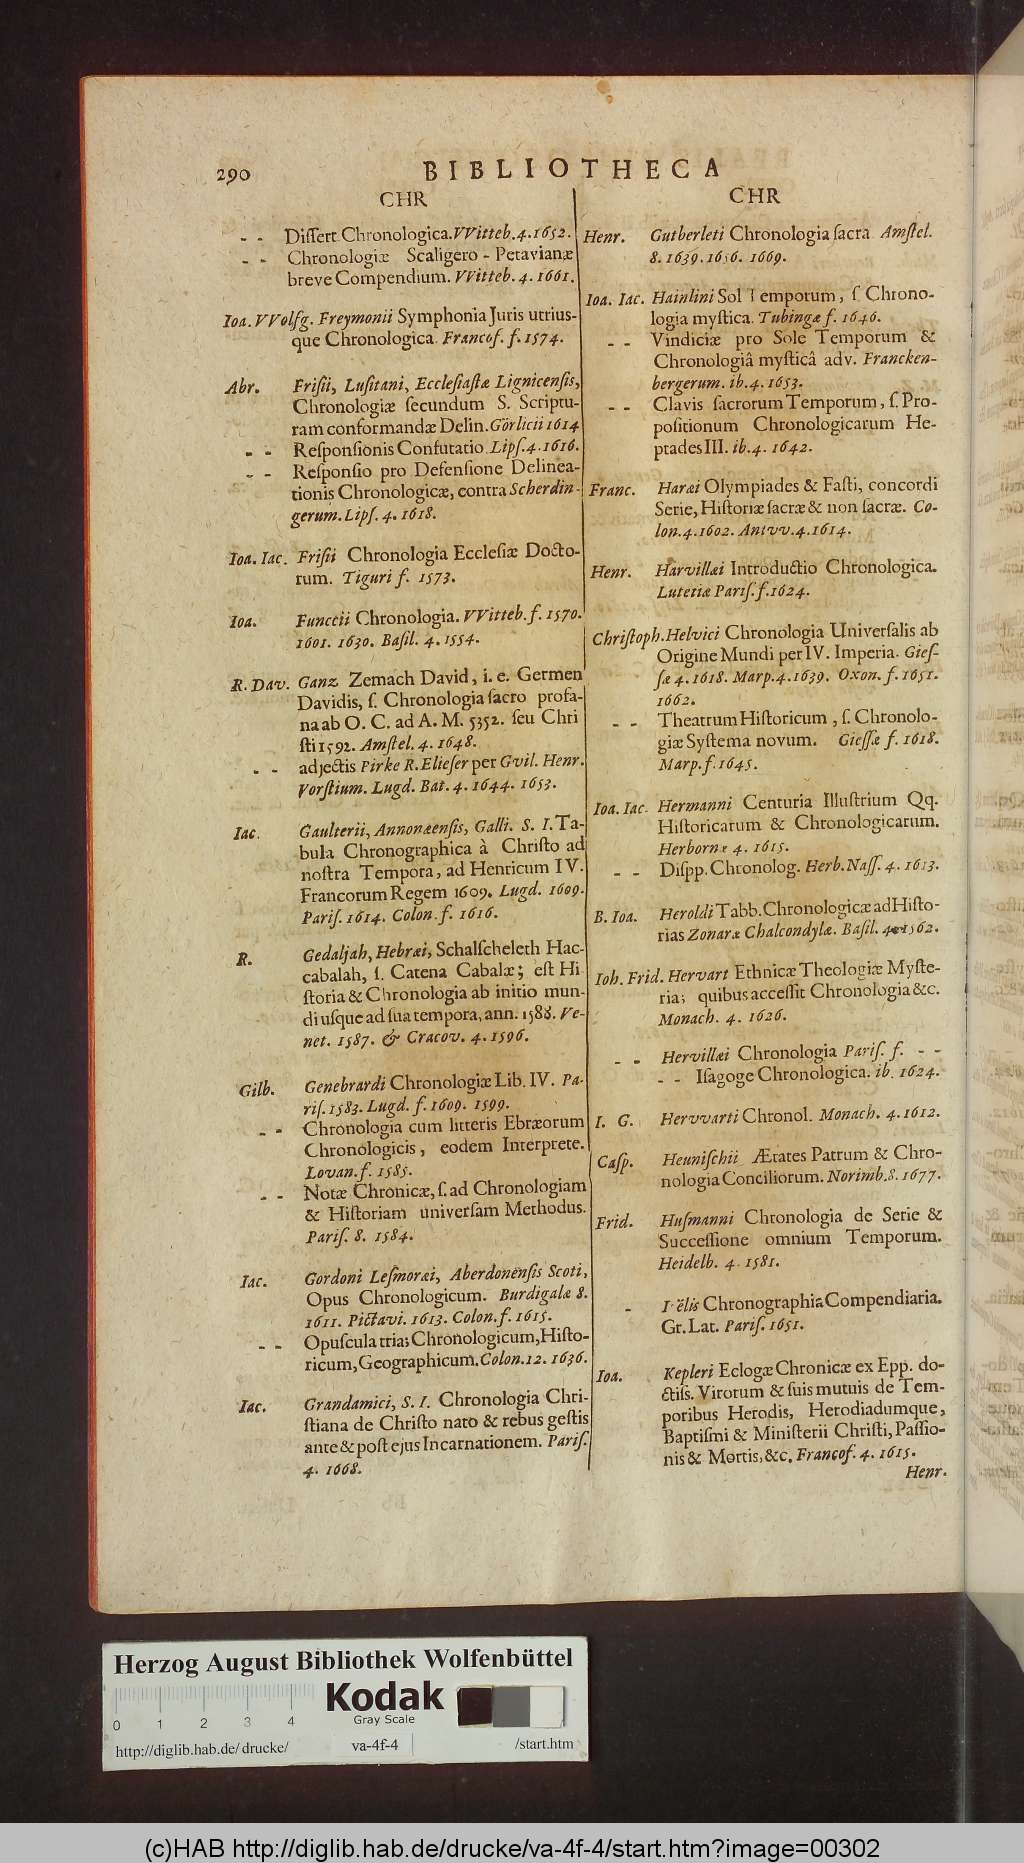 290 BIBLIOTHECA
CHR
- - Dissert. Chronologica. VVitteb. 4. 1652.
- - Chronologiæ Scaligero-Petavianæ
breve Compendium. VVitteb. 4. 1661.
Ioa. VVolfg. Freymonii Symphonia Juris utrius-
que Chronologica. Francof. f. 1574.
Abr. Frisii, Lusitani, Ecclesiastæ Lignicensis,
Chronologiæ secundum S. Scriptu-
ram conformandæ Delin. Görlicii 1614
- - Responsionis Confutatio. Lips. 4. 1616.
- - Responsio pro Defensione Delinea-
tionis Chronologicæ, contra Scherdin-
gerum. Lips. 4. 1618.
Ioa. Iac. Frisii Chronologia Ecclesiæ Docto-
rum. Tiguri f. 1573.
Ioa. Funccii Chronologia. VVitteb. f. 1570.
1601. 1630. Basil. 4. 1554.
R. Dav. Ganz Zemach David, i. e. Germen
Davidis, s. Chronologia sacro profa-
na ab O. C. ad A. M. 5352. seu Chri
sti 1592. Amstel. 4. 1648.
- - adjectis Pirke R. Elieser per Gvil. Henr.
Vorstium. Lugd. Bat. 4. 1644. 1653.
Iac. Gaulterii, Annonæensis, Galli. S. I. Ta-
bula Chronographica à Christo ad
nostra Tempora, ad Henricum IV.
Francorum Regem 1609. Lugd. 1609.
Paris. 1614. Colon. f. 1616.
R. Gedaljah, Hebræi, Schalscheleth Hac-
cabalah, s. Catena Cabalæ; est Hi
storia & Chronologia ab initio mun-
di usque ad sua tempora, ann. 1588. Ve-
net. 1587. & Cracov. 4. 1596.
Gilb. Genebrardi Chronologiæ Lib. IV. Pa-
ris. 1583. Lugd. f. 1609. 1599.
- - Chronologia cum litteris Ebræorum
Chronologicis, eodem Interprete.
Lovan. f. 1585.
- - Notæ Chronicæ, s. ad Chronologiam
& Historiam universam Methodus.
Paris. 8. 1584.
Iac. Gordoni Lesmoræi, Aberdonensis Scoti,
Opus Chronologicum. Burdigalæ 8.
1611. Pictavi. 1613. Colon. f. 1615.
- - Opuscula tria; Chronologicum, Histo-
ricum, Geographicum. Colon. 12. 1636.
Iac. Grandamici, S. I. Chronologia Chri-
stiana de Christo nato & rebus gestis
ante & post ejus Incarnationem. Paris.
4. 1668.
CHR
Henr. Gutberleti Chronologia sacra Amstel.
8. 1639. 1656. 1669.
Ioa. Iac. Hainlini Sol Temporum, s Chrono-
logia mystica. Tubingæ f. 1646.
- - Vindiciæ pro Sole Temporum &
Chronologiâ mysticâ adv. Francken-
bergerum. ib. 4. 1653.
- - Clavis sacrorum Temporum, s. Pro-
positionum Chronologicarum He-
ptades III. ib. 4. 1642.
Franc. Haræi Olympiades & Fasti, concordi
Serie, Historiæ sacræ & non sacræ. Co-
lon. 4. 1602. Antvv. 4. 1614.
Henr. Harvillæi Introductio Chronologica.
Lutetiæ Paris. f. 1624.
Christoph. Helvici Chronologia Universalis ab
Origine Mundi per IV. Imperia. Gies-
sæ 4. 1618. Marp. 4. 1639. Oxon. f. 1651.
1662.
- - Theatrum Historicum, s. Chronolo-
giæ Systema novum. Giessæ f. 1618.
Marp. f. 1645.
Ioa. Iac. Hermanni Centuria Illustrium Qq.
Historicarum & Chronologicarum.
Herbornæ 4. 1615.
- - Dispp. Chronolog. Herb. Nass. 4. 1613.
B. Ioa. Heroldi Tabb. Chronologicæ ad Histo-
rias Zonaræ Chalcondylæ. Basil. 1562.
Ioh. Frid. Hervart Ethnicæ Theologiæ Myste-
ria; quibus accessit Chronologia &c.
Monach. 4. 1626.
- - Hervillæi Chronologia Paris. f. - -
- - Isagoge Chronologica. ib. 1624.
I. G. Hervvarti Chronol. Monach. 4. 1612.
Casp. Heunischii Ætates Patrum & Chro-
nologia Conciliorum. Norimb. 8. 1677.
Frid. Husmanni Chronologia de Serie &
Successione omnium Temporum.
Heidelb. 4. 1581.
- Chronographia Compendiaria.
Gr. Lat. Paris. 1651.
Ioa. Kepleri Eclogæ Chronicæ ex Epp. do-
ctiss. Virorum & suis mutuis de Tem-
poribus Herodis, Herodiadumque,
Baptismi & Ministerii Christi, Passio-
nis & Mortis, &c. Francof. 4. 1615.
Henr.
Herzog August Bibliothek Wolfenbüttel
Kodak
Gray Scale
0 1 2 3 4
http://diglib.hab.de/drucke/ va-4f-4 /start.htm
(c)HAB http://diglib.hab.de/drucke/va-4f-4/start.htm?image=00302